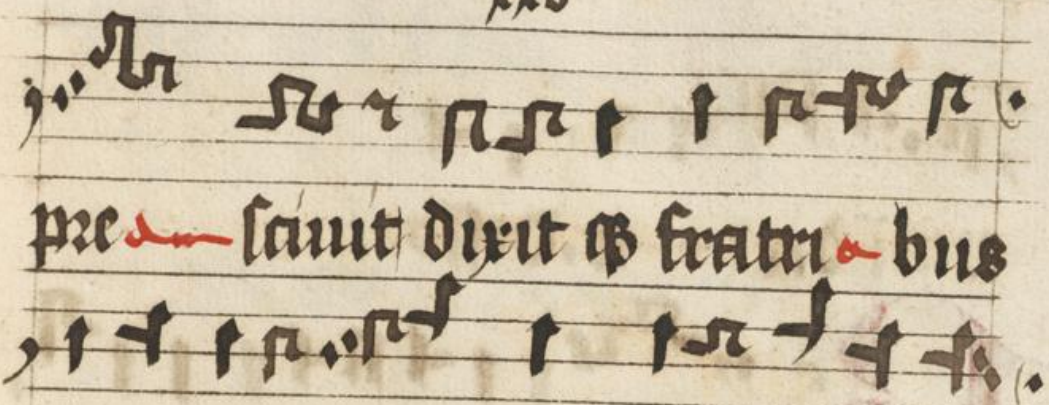 xxv
pre sciuit dixit qꝫ fratri bus